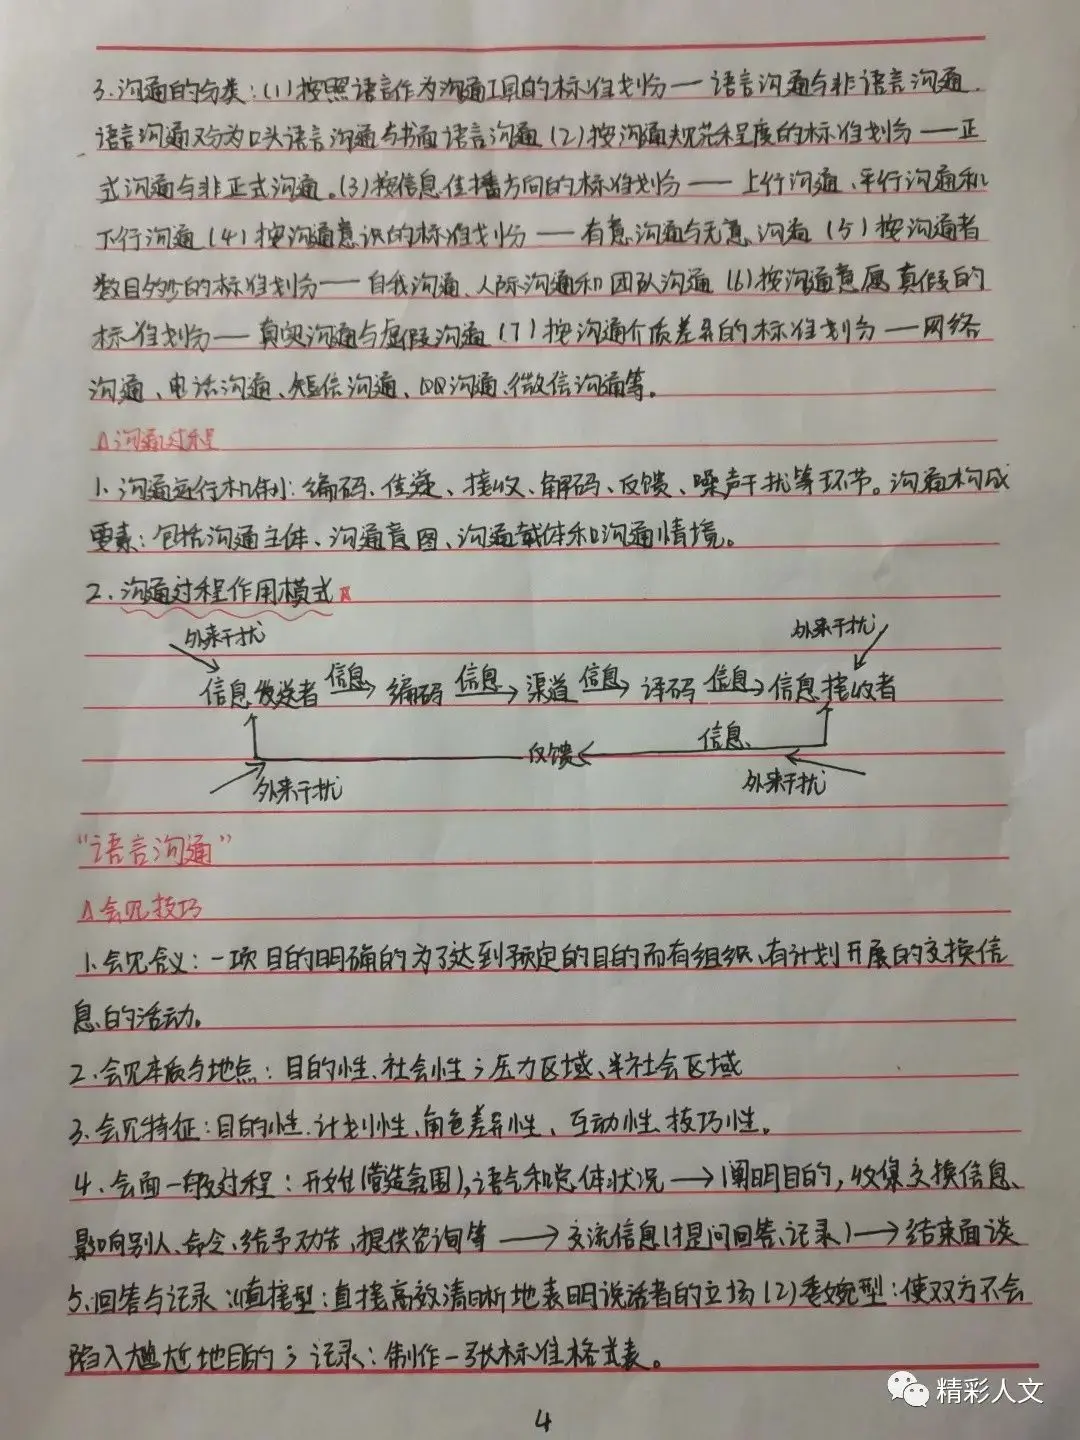 3.沟通的分类:(1)按照语言作为沟通工具的标准划分——语言沟通与非语言沟通.
语言沟通又分为口头语言沟通与书面语言沟通(2)按沟通规范程度的标准划分——正
式沟通与非正式沟通。(3)按信息传播方向的标准划分——上行沟通、平行沟通和
下行沟通(4)按沟通意识的标准划分——有意沟通与无意沟通(5)按沟通者
数目多少的标准划分——自我沟通、人际沟通和团队沟通(6)按沟通意愿真假的
标准划分——真实沟通与虚假沟通(7)按沟通介质差异的标准划分——网络
沟通、电话沟通、短信沟通、QQ沟通、微信沟通等。
△沟通过程
1.沟通运行机制:编码、传递、接收、解码、反馈、噪声干扰等环节。沟通构成
要素:包括沟通主体、沟通意图、沟通载体和沟通情境。
2.沟通过程作用模式
外来干扰 外来干扰
信息发送者 信息→ 编码 信息→ 渠道 信息→ 译码 信息→ 信息接收者
反馈 信息
外来干扰 外来干扰
“语言沟通”
△会见技巧
1.会见含义:一项目的明确的为了达到预定的目的而有组织、有计划开展的交换信
息的活动。
2.会见本质与地点:目的性、社会性;压力区域、半社会区域
3.会见特征:目的性、计划性、角色差异性、互动性、技巧性。
4.会面一般过程:开始(营造氛围),语气和总体状况→阐明目的,收集交换信息、
影响别人、命令、给予劝告、提供咨询等→交流信息(提问回答、记录)→结束面谈
5.回答与记录:(1)直接型:直接高效清晰地表明说话者的立场(2)委婉型:使双方不会
陷入尴尬地目的;记录:制作一张标准格式表。
精彩人文
4